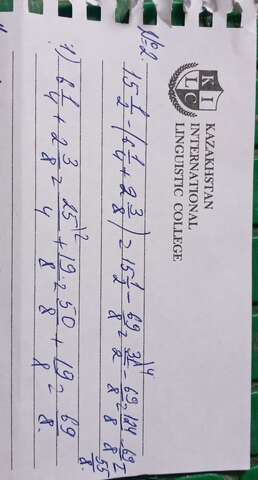 KAZAKHSTAN
INTERNATIONAL
LINGUISTIC COLLEGE
KILC
№2.
15 1/2 - (6 1/4 + 2 3/8) = 15 1/2 - 69/8 = 31/2 \4 - 69/8 = 124/8 - 69/8 =
55/8
1) 6 1/4 + 2 3/8 = 25/4 \2 + 19/8 = 50/8 + 19/8 = 69/8.